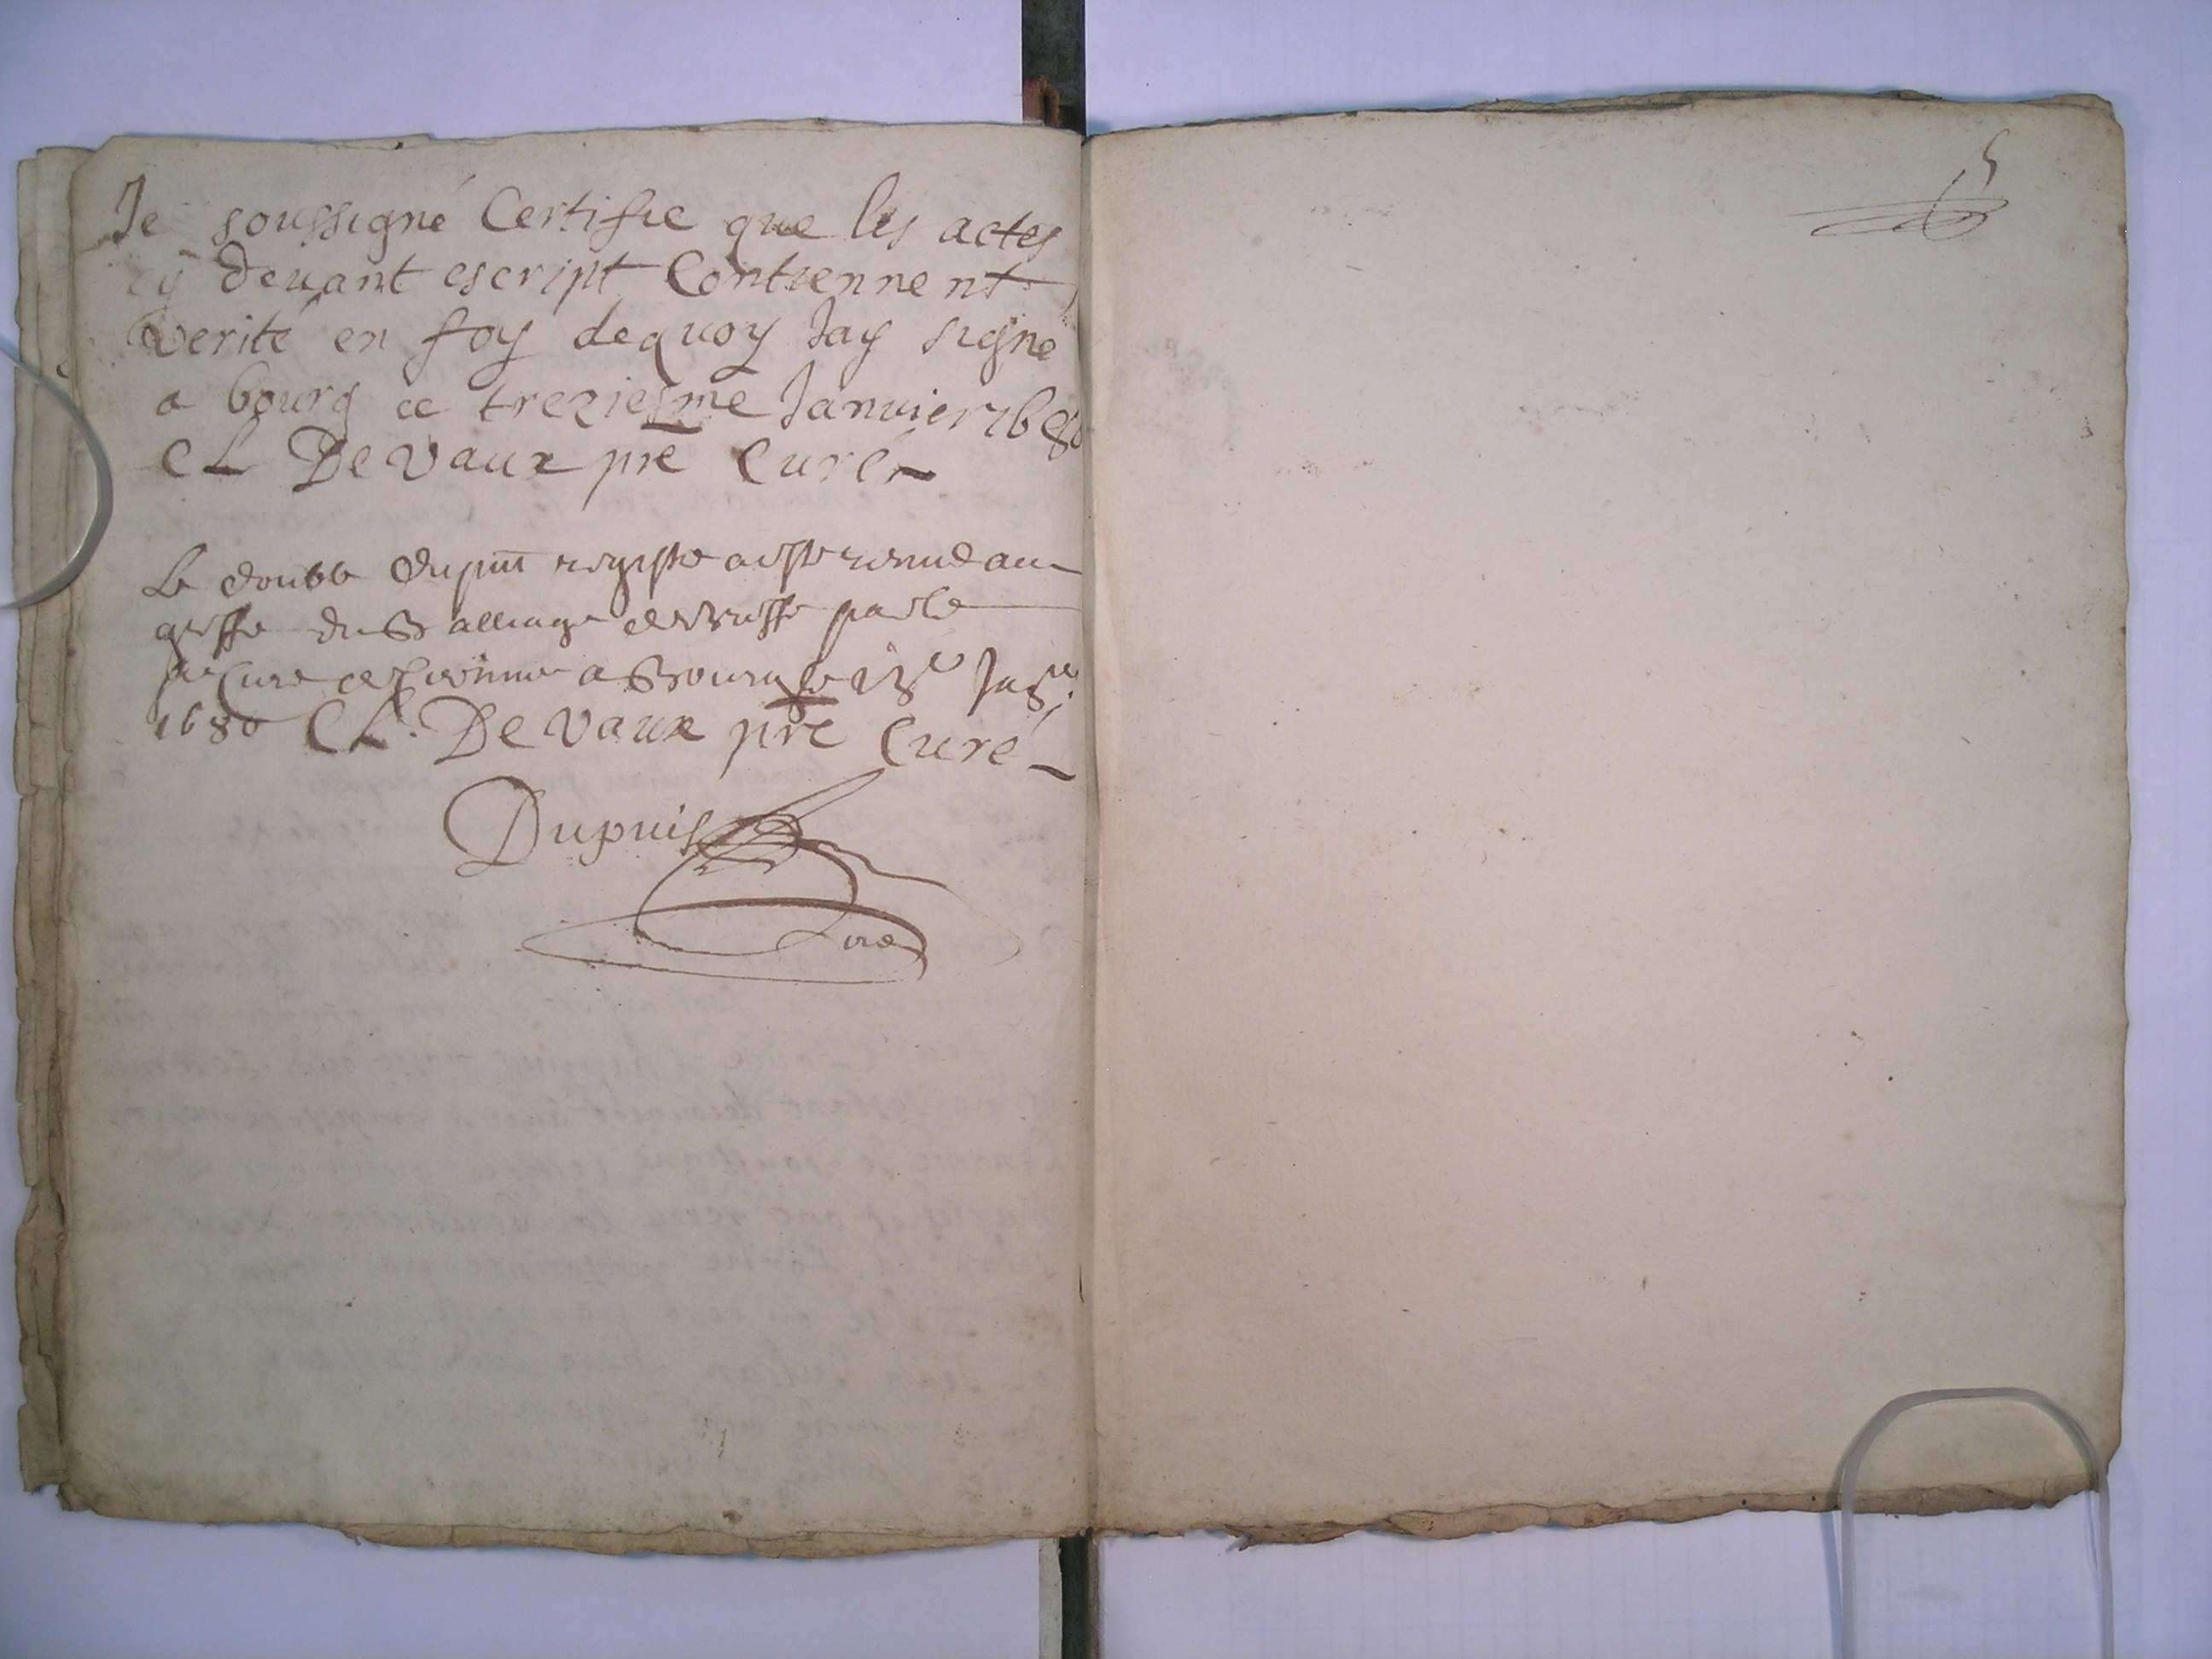 Je soussigné Certifie que les actes
cy devant escript Contiennent
verité en foy dequoy Jay signé
a bourg ce treziesme Janvier 1680
CL De Vaux pre Curé
Le double du pnt registre a esté remis au
greffe du Balliage de Bresse par le
Sr Curé a Bourg le 13e
1680 CL. De Vaux pre Curé
Dupuis
5